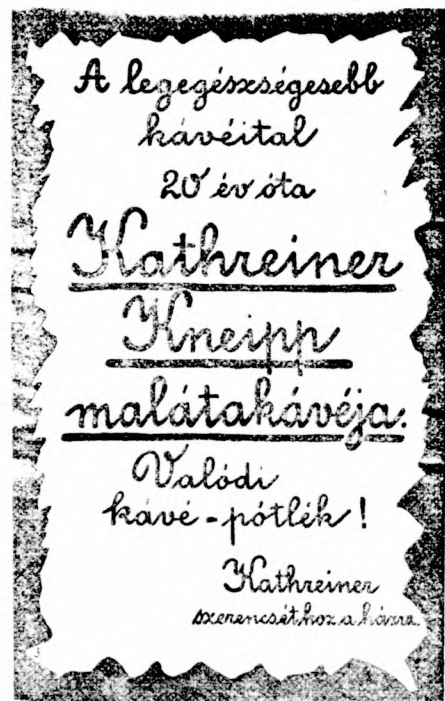 A legegészségesebb
kávéital
20 év óta
Kathreiner
Kneipp
malátakávéja.
Valódi
kávé-pótlék!
Kathreiner
szerencsét hoz a házra.